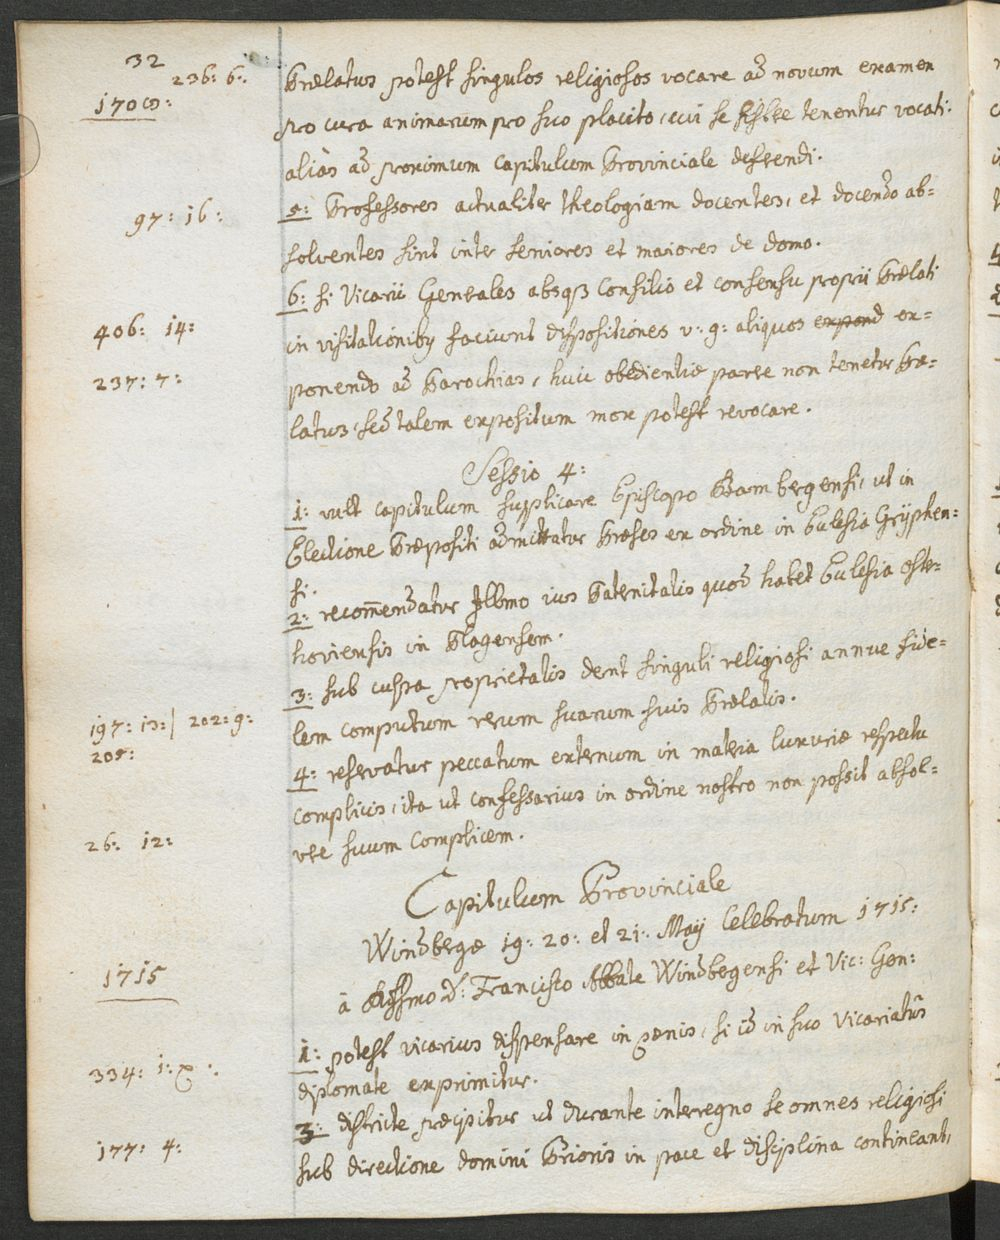 32
236: 6:
1709:
Prælatus potest singulos religiosos vocare ad novum examen
pro cura animarum pro suo placito, cui se sistere tenentur vocati:
alias ad proximum capitulum Provinciale differendi.
97: 16:
5: Professores actualiter theologiam docentes, et docendo ab=
solventes sint inter seniores et maiores de domo.
6: si Vicarii Generales absq3 Consilio et consensu proprii Prælati
406: 14:
in visitationiby faciunt dispositiones v: g: aliquos expond ex=
237: 7:
ponendo ad Parochias, huic obedientiæ parere non tenetur Præ=
latus, sed talem expositum mox potest revocare.
Sessio 4:
1: vult capitulum supplicare Episcopo Bambergensi, ut in
Electione Præpositi admittatur Præses ex ordine in Ecclesia Gryphen=
si.
2: recom̄endatur Illmo ius Paternitatis quod habet Ecclesia Oste=
hoviensis in Plagensem.
3: sub culpa proprietatis dent singuli religiosi annue fide=
197: 13: | 202: 9:
lem computum rerum suarum suis Prælatis.
205:
4: reservatur peccatum externum in materia luxuriæ respectu
complicis, ita ut confessarius in ordine nostro non possit absol=
26: 12:
vere suum complicem.
Capitulum Provinciale
Windbergæ 19: 20: et 21: Maÿ Celebratum 1715:
1715
à Rssmo D: Francisco Abbate Windbergensi et Vic: Gen:
1: potest vicarius dispensare in pænis, si id in suo Vicariatûs
334: 1:
diplomate exprimitur.
3: districte præcipitur ut durante interregno se omnes religiosi
177: 4:
sub directione domini Prioris in pace et disciplina contineant,